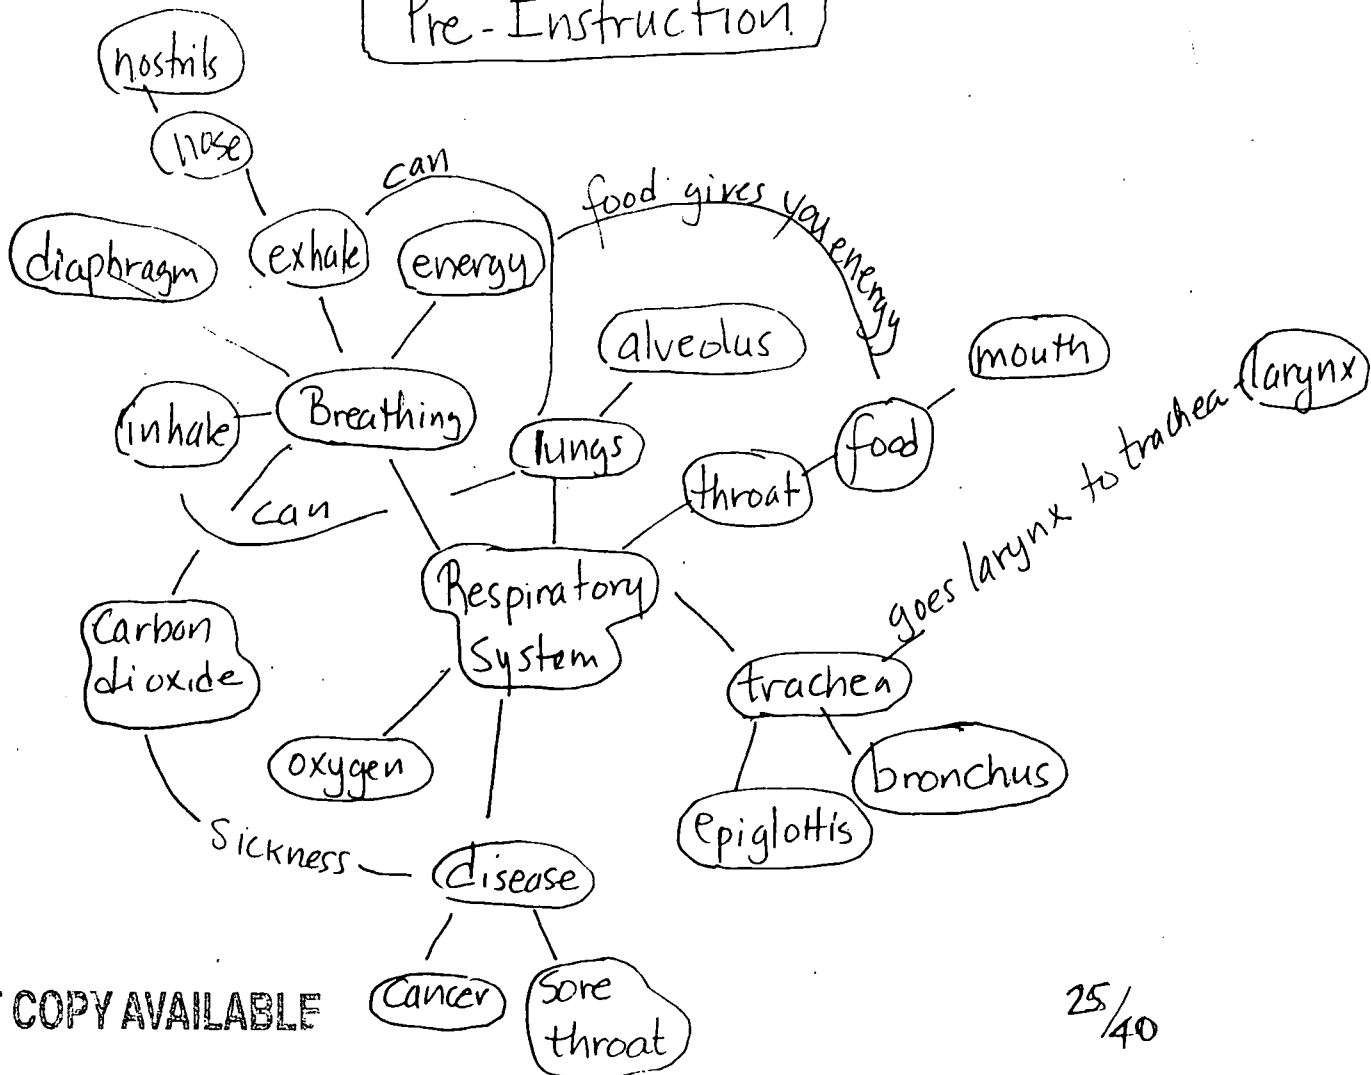 Pre-Instruction
nostrils
nose
can
food gives you energy
diaphragm
exhale
energy
alveolus
mouth
larynx
inhale
Breathing
lungs
throat
food
can
goes larynx to trachea
Respiratory
System
Carbon
dioxide
trachea
oxygen
bronchus
epiglottis
Sickness
disease
Cancer
Sore
throat
COPY AVAILABLE
25/40